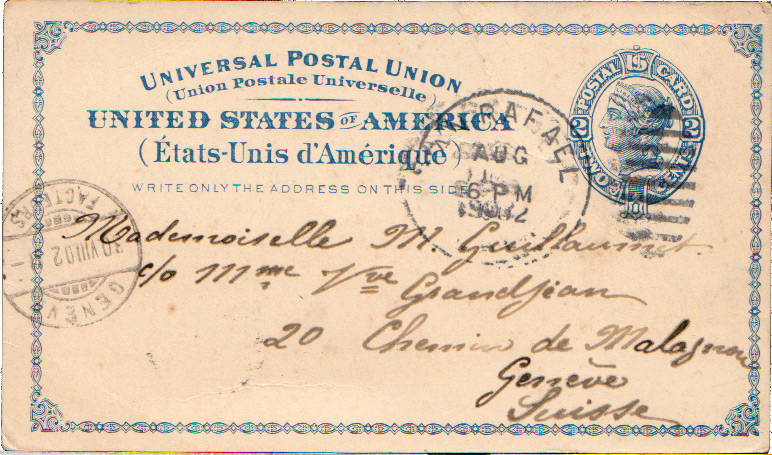 UNIVERSAL POSTAL UNION
(Union Postale Universelle)
UNITED STATES OF AMERICA
(États-Unis d'Amérique)
WRITE ONLY THE ADDRESS ON THIS SIDE
POSTAL CARD
2 TWO CENTS 2
RAFAEL
AUG
6 PM
1902
Mademoiselle M. Guillaumet
c/o Mme Vve Grandjean
20 Chemin de Malagnou
Genève
Suisse
FACTEURS
30 VIII 02
GENÈVE